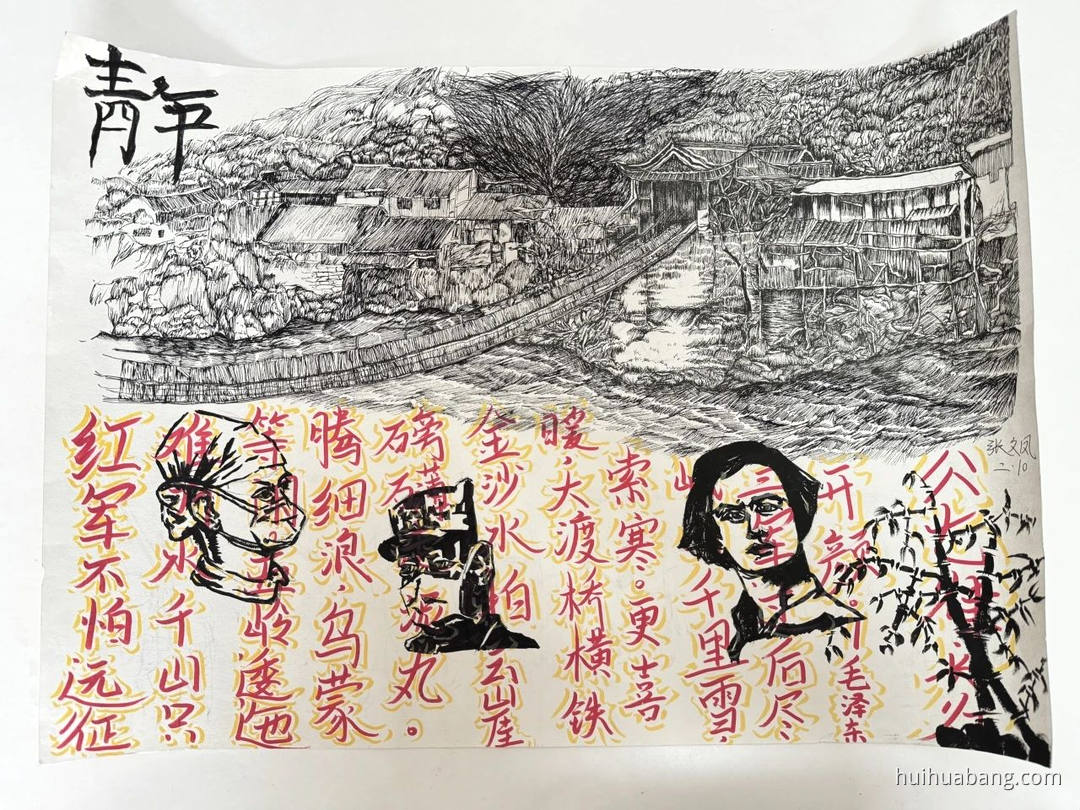 青年
红军不怕远征
难水千山只
等闲。五岭逶迤
腾细浪，乌蒙
磅礴丸。
金沙水拍云山崖
暖，大渡桥横铁
索寒。更喜
岷千里雪，
三军后尽
开颜。—毛泽东
张文凤
二·10
huihuabang.com